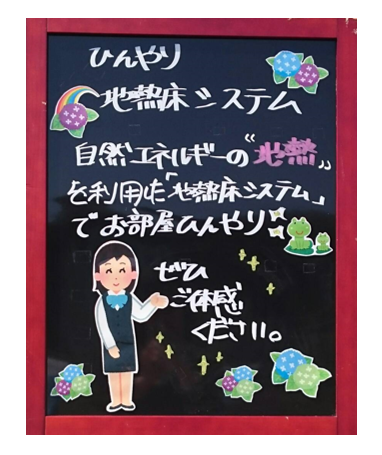 ひんやり
地熱床システム
自然エネルギーの"地熱"
を利用した「地熱床システム」
でお部屋ひんやり
ぜひ
ご体感
ください。